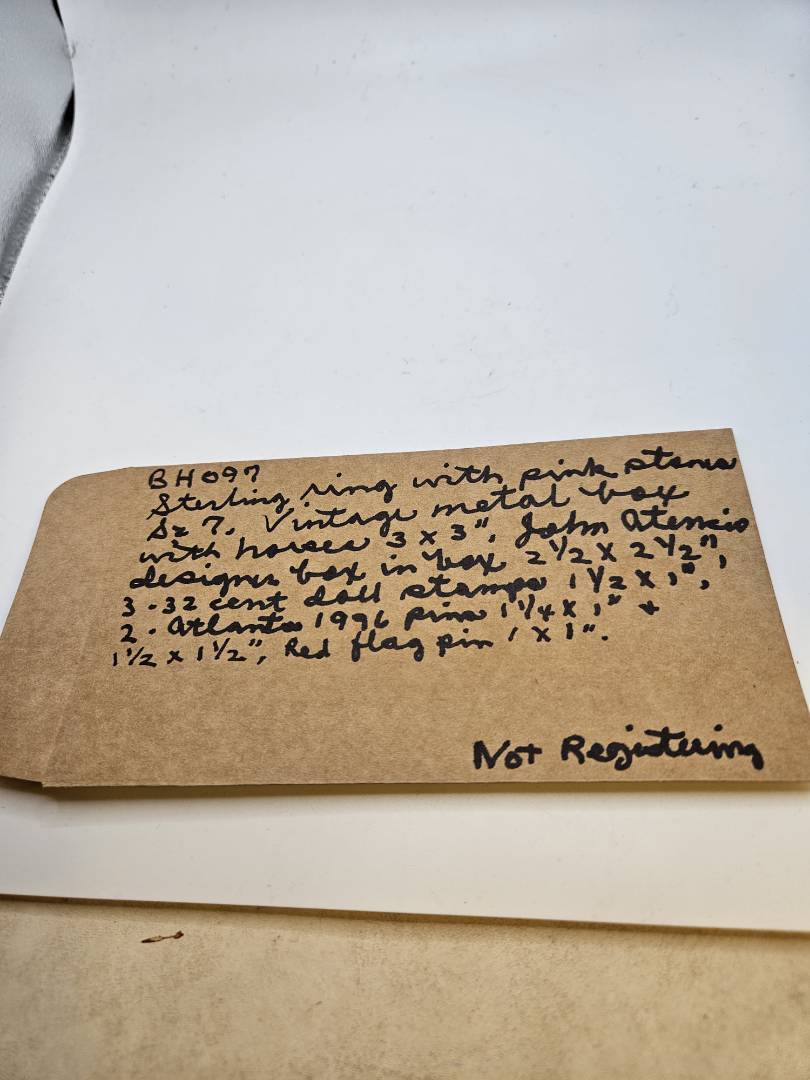 BH097
Sterling ring with pink stone
Sz 7. Vintage metal box
with horses 3 x 3", John Atencio
designer box in box 2 1/2 x 2 1/2",
3 - 32 cent doll stamps 1 1/2 x 1",
2 - Atlanta 1996 pins 1 1/4 x 1" +
1 1/2 x 1 1/2", Red flag pin 1 x 1".
Not Registering